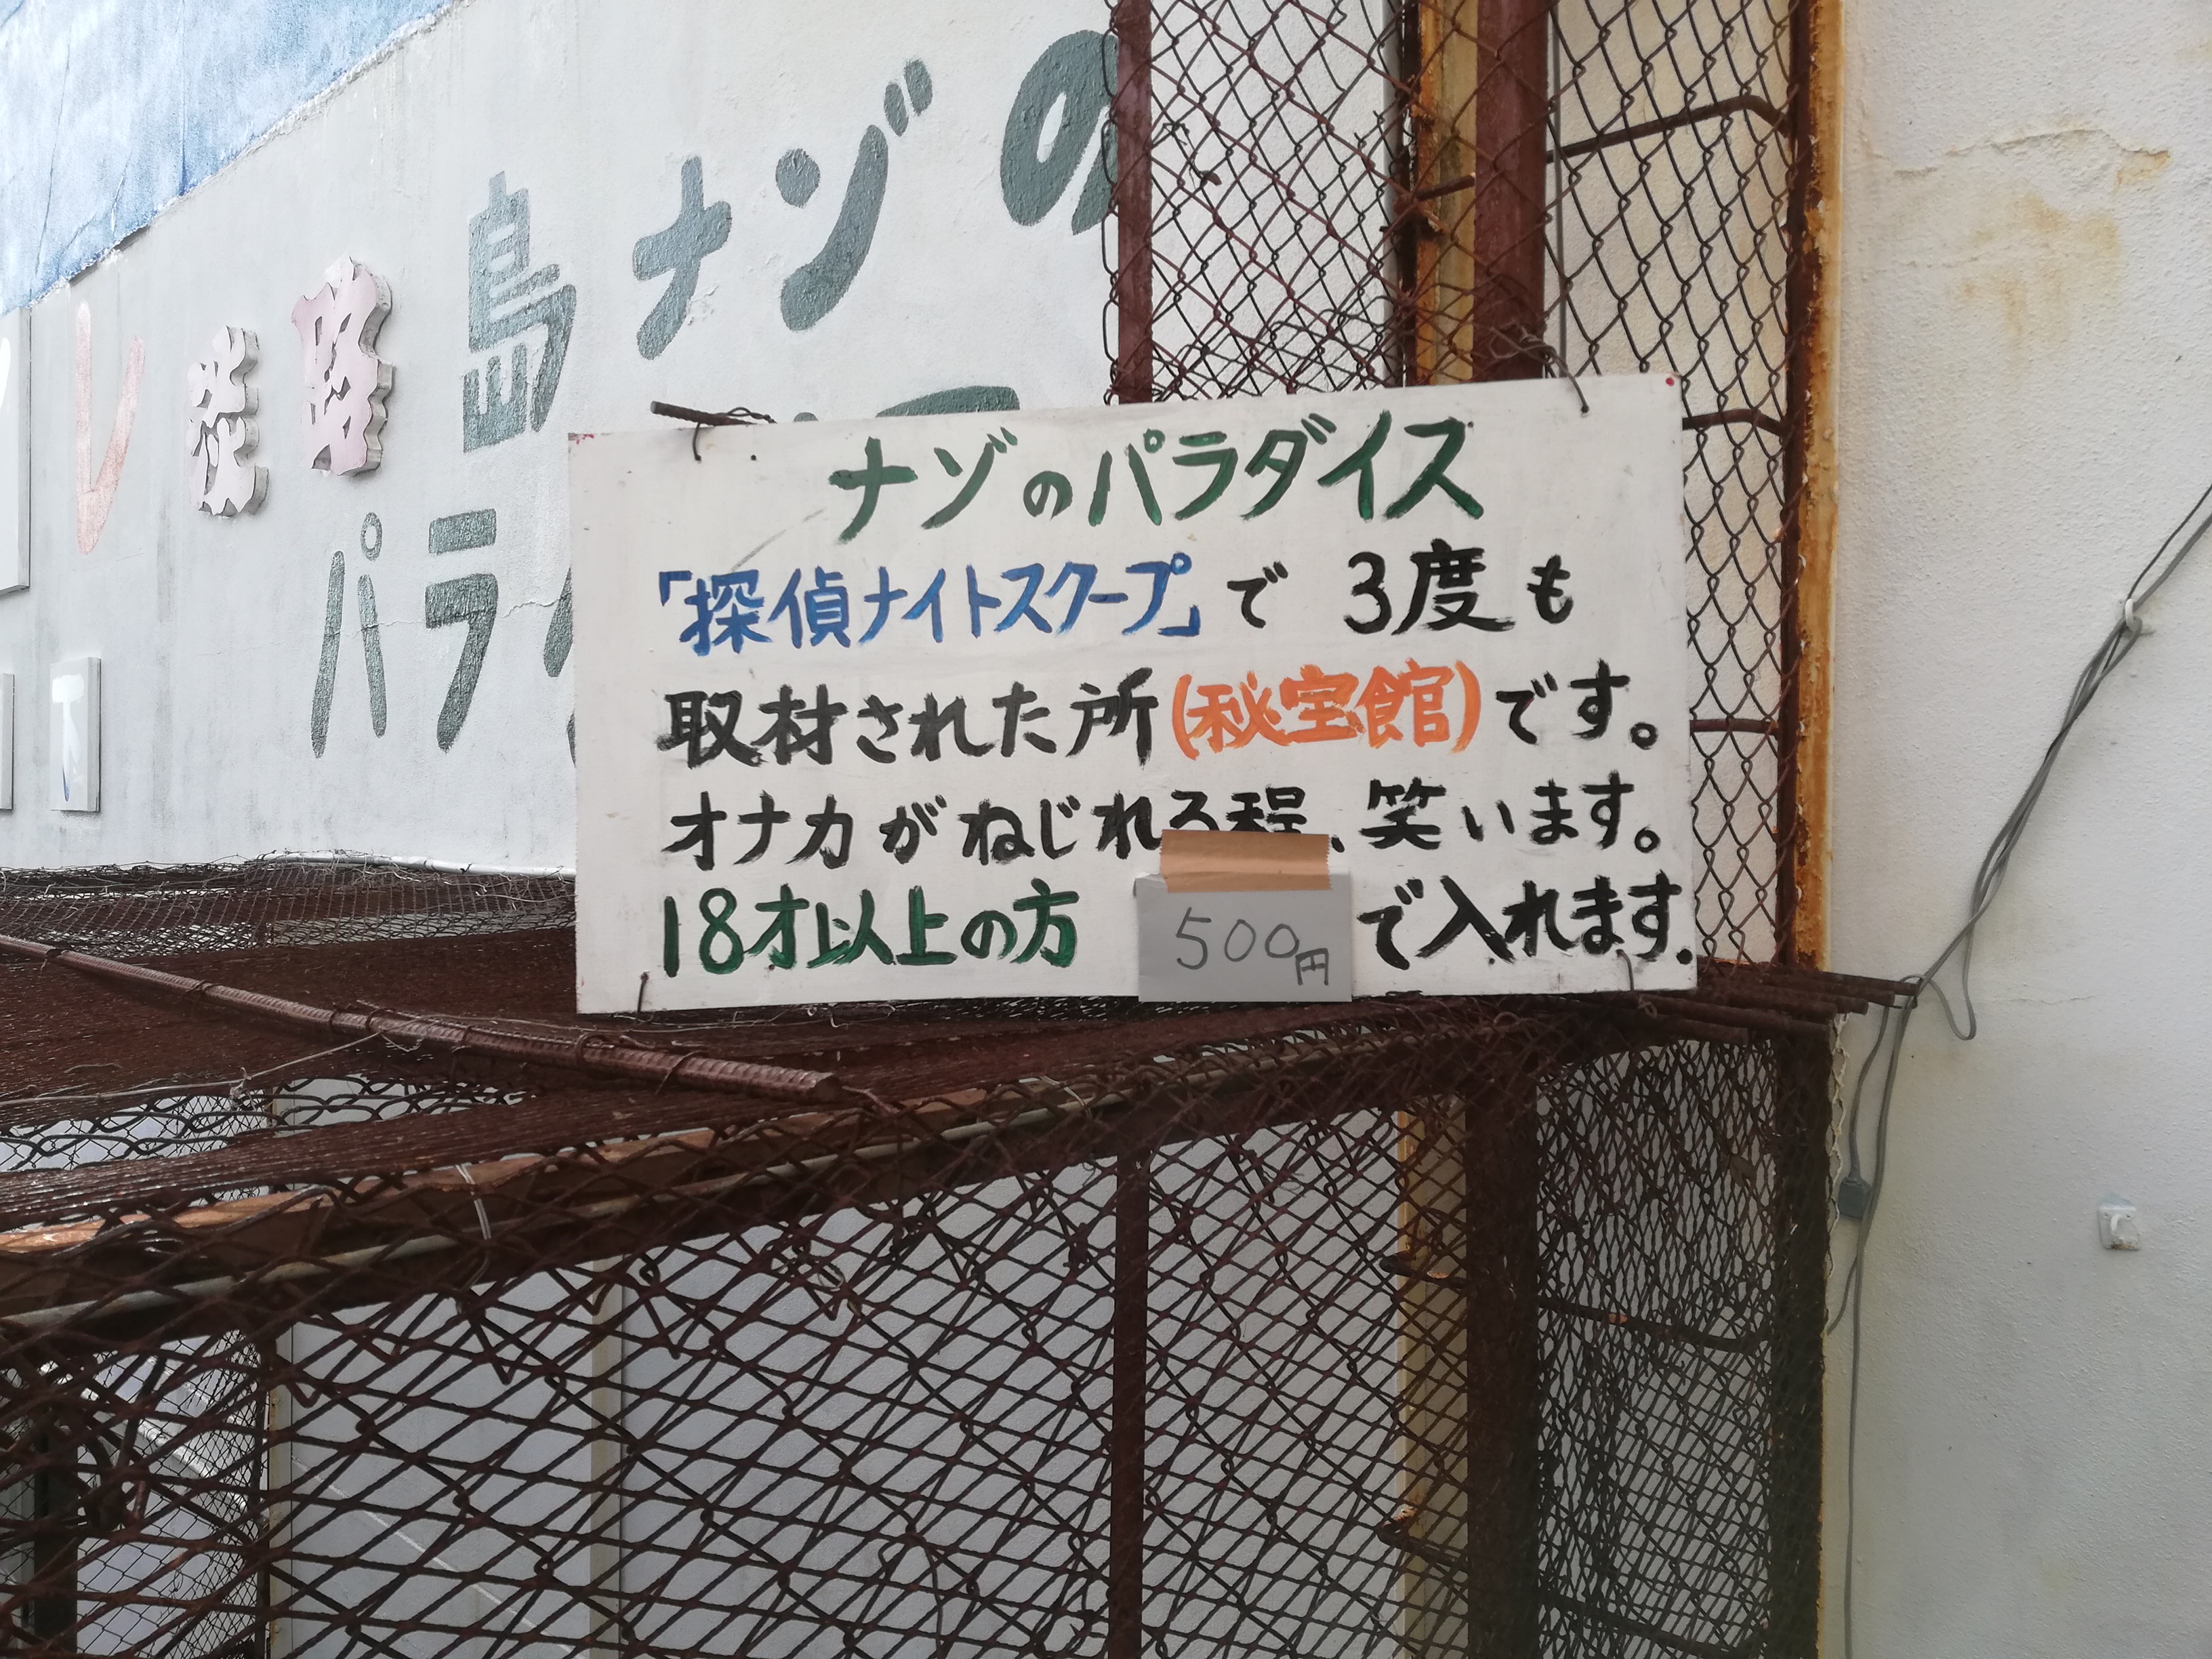 レ 淡路島ナゾの
パラ
ナゾのパラダイス
「探偵ナイトスクープ」で 3度も
取材された所(秘宝館)です。
オナカがねじれる程、笑います。
18才以上の方 500円 で入れます.